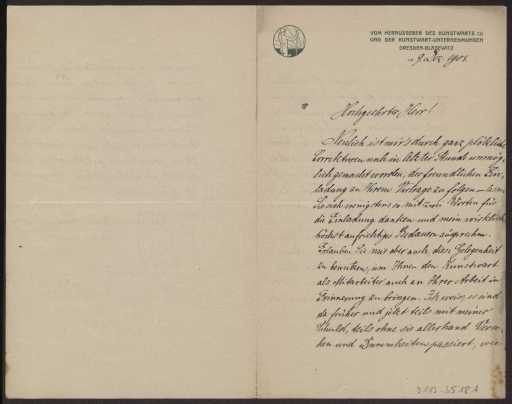 VOM HERAUSGEBER DES KUNSTWARTS
UND DER KUNSTWART-UNTERNEHMUNGEN
DRESDEN-BLASEWITZ
1901.
Hochgeehrter Herr!
Neulich ist mir's durch ganz plötzliche
Korrekturen noch in letzter Stunde unmög-
lich gemacht worden, der freundlichen Ein-
ladung zu Ihrem Vortrage zu folgen – lassen
Sie sich wenigstens mit zwei Worten für
die Einladung danken und mein wirklich
höchst aufrichtiges Bedauern aussprechen.
Erlauben Sie mir aber auch, diese Gelegenheit
zu benutzen, um Ihnen den Kunstwart
als Mitarbeiter auch an Ihrer Arbeit in
Erinnerung zu bringen. Ich weiss, es sind
da früher und jetzt teils mit meiner
Schuld, teils ohne sie allerhand Verse-
hen und Dummheiten passiert, wie